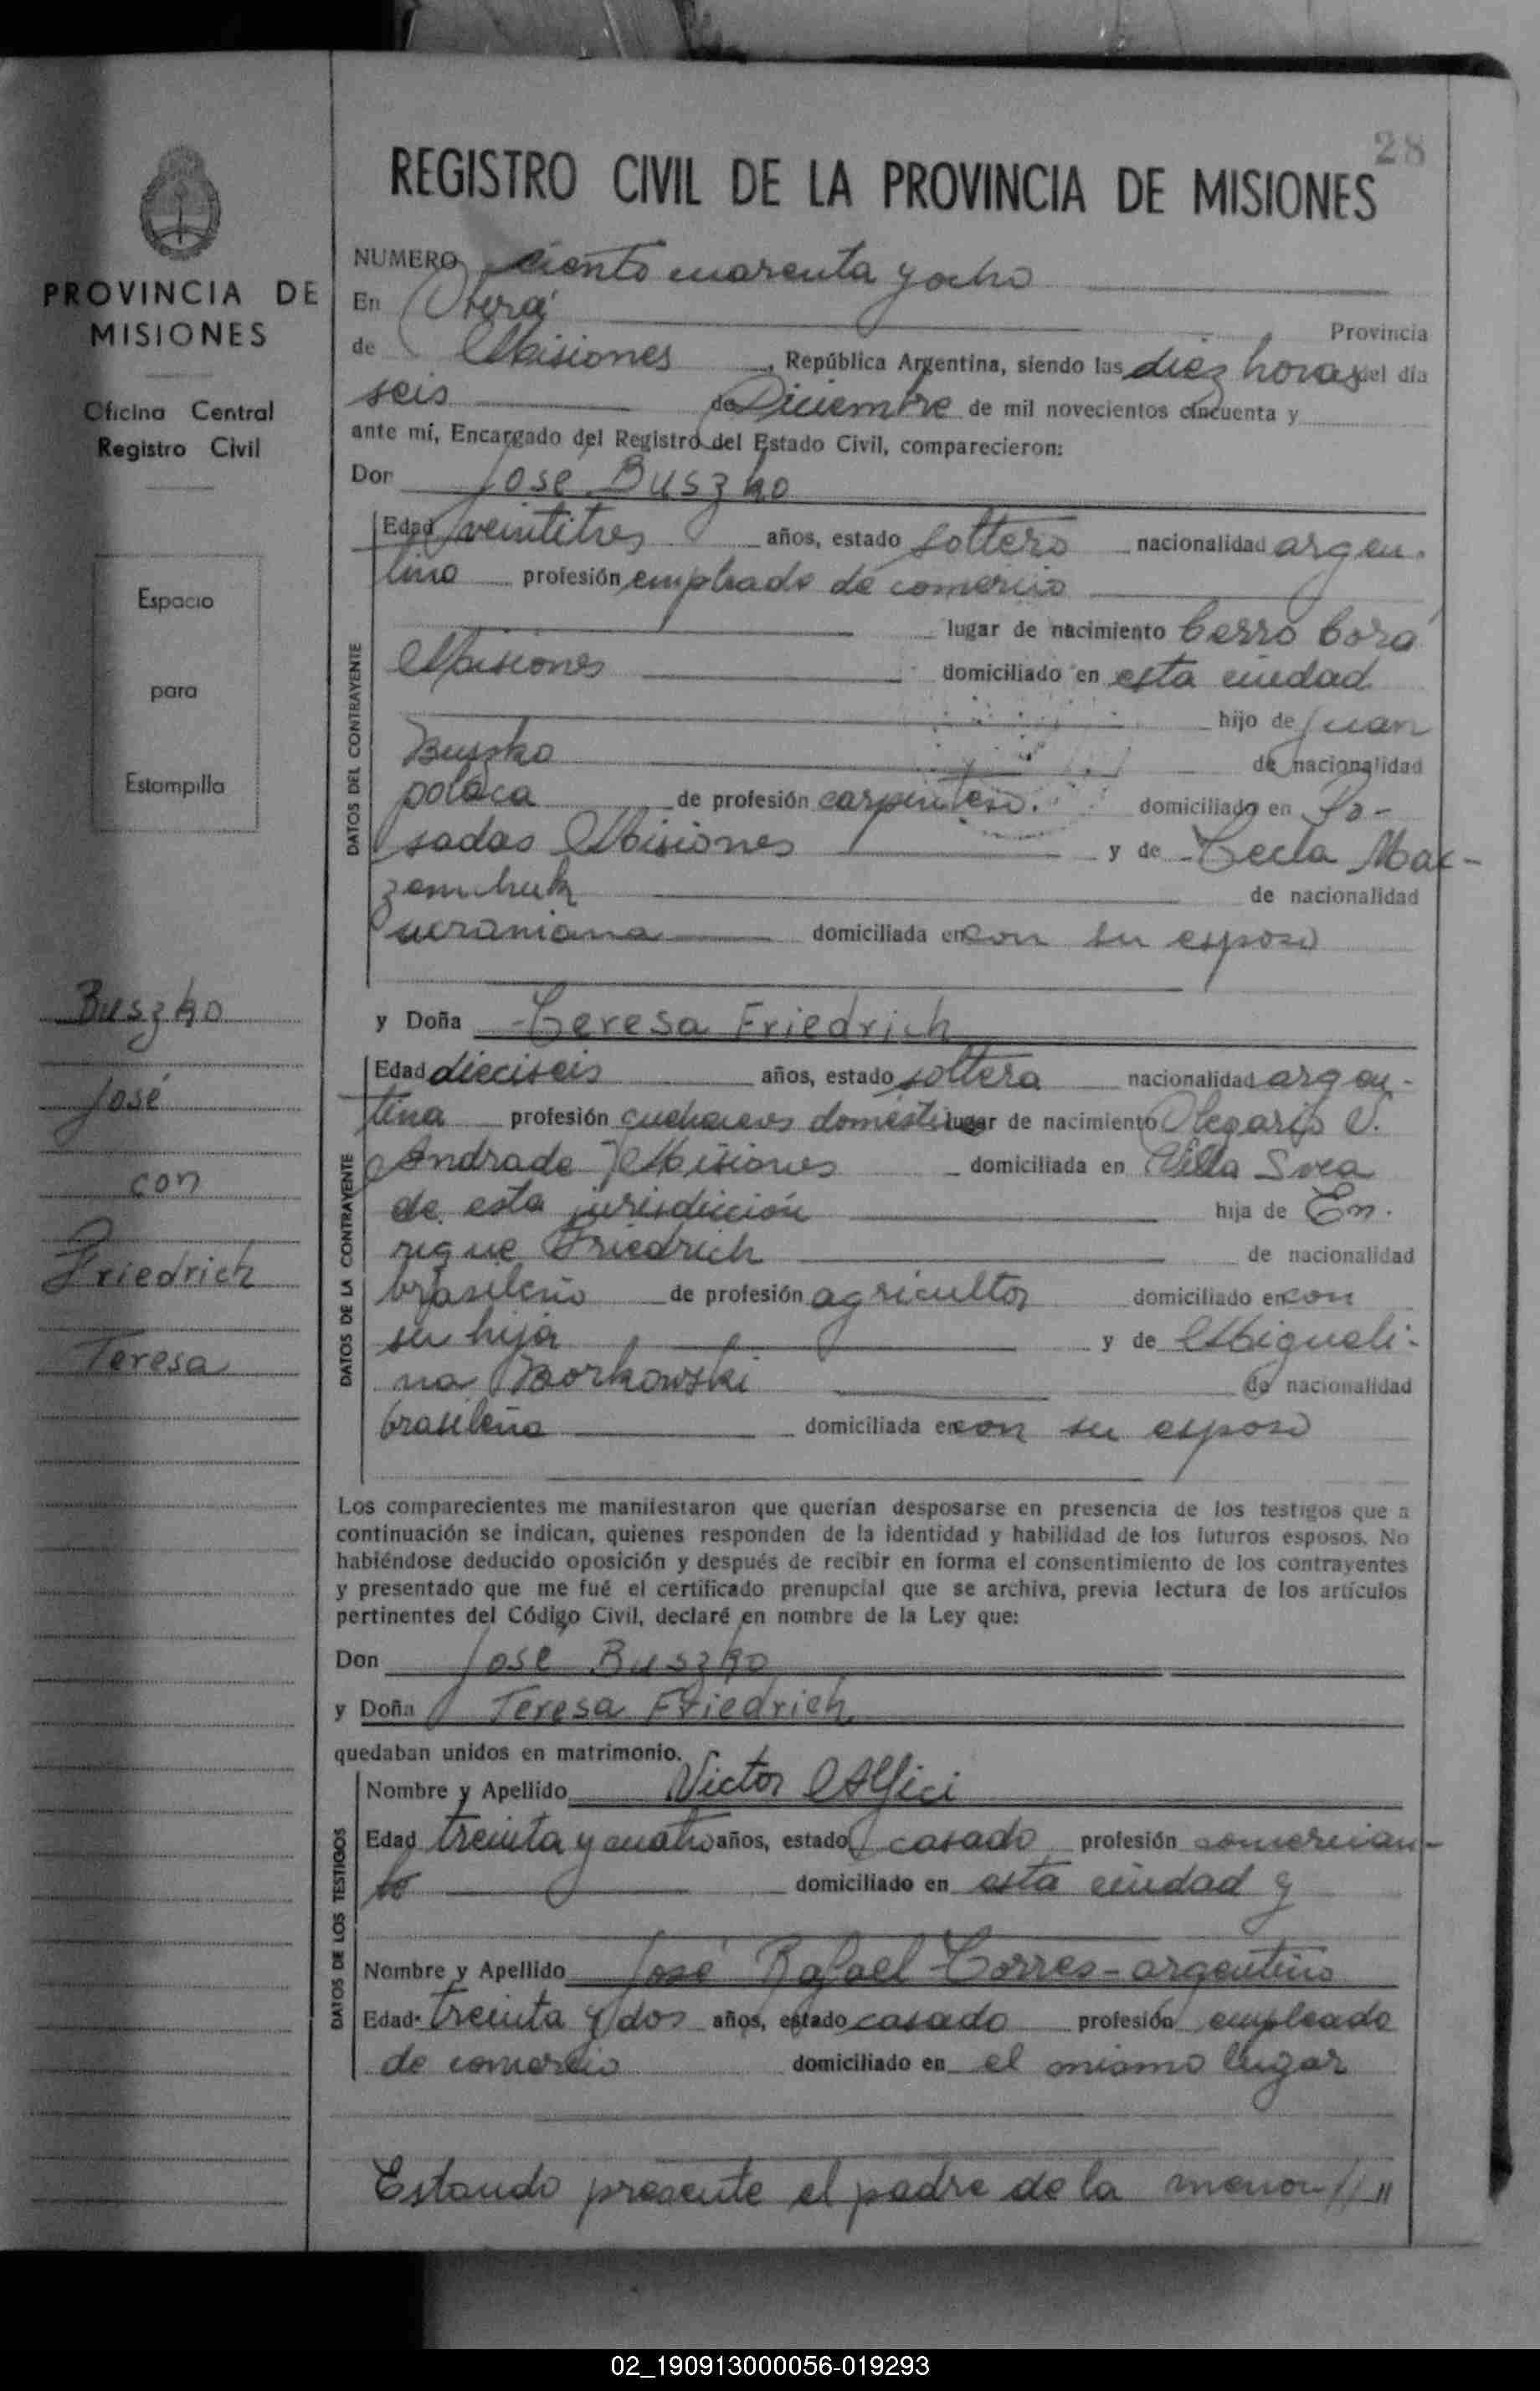 28
REGISTRO CIVIL DE LA PROVINCIA DE MISIONES
PROVINCIA DE
MISIONES
Oficina Central
Registro Civil
Espacio
para
Estampilla
Buszko
José
con
Friedrich
Teresa
NUMERO ciento cuarenta y ocho
En Oberá Provincia
de Misiones, República Argentina, siendo las diez horas del día
seis de Diciembre de mil novecientos cincuenta y
ante mí, Encargado del Registro del Estado Civil, comparecieron:
Don José Buszko
DATOS DEL CONTRAYENTE
Edad veintitres años, estado soltero nacionalidad argen-
tino profesión empleado de comercio
lugar de nacimiento Cerro Corá
Misiones domiciliado en esta ciudad
hijo de Juan
Buszko de nacionalidad
polaca de profesión carpintero. domiciliado en Po-
sadas Misiones y de Tecla
de nacionalidad
ucraniana domiciliada en con su esposo
y Doña Teresa Friedrich
DATOS DE LA CONTRAYENTE
Edad dieciseis años, estado soltera nacionalidad argen-
tina profesión quehaceres domésticos lugar de nacimiento Olegario V.
Andrade Misiones domiciliada en Villa Svea
de esta jurisdicción hija de En-
rique Friedrich de nacionalidad
brasileño de profesión agricultor domiciliado en con
su hija y de Migueli-
na Borkowski de nacionalidad
brasileña domiciliada en con su esposo
Los comparecientes me manifestaron que querían desposarse en presencia de los testigos que a
continuación se indican, quienes responden de la identidad y habilidad de los futuros esposos. No
habiéndose deducido oposición y después de recibir en forma el consentimiento de los contrayentes
y presentado que me fué el certificado prenupcial que se archiva, previa lectura de los artículos
pertinentes del Código Civil, declaré en nombre de la Ley que:
Don José Buszko
y Doña Teresa Friedrich
quedaban unidos en matrimonio.
DATOS DE LOS TESTIGOS
Nombre y Apellido Victor Alfici
Edad treinta y cuatro años, estado casado profesión comercian-
te domiciliado en esta ciudad y
Nombre y Apellido José Rafael Torres - argentino
Edad treinta y dos años, estado casado profesión empleado
de comercio domiciliado en el mismo lugar
Estando presente el padre de la menor //"
02_190913000056-019293